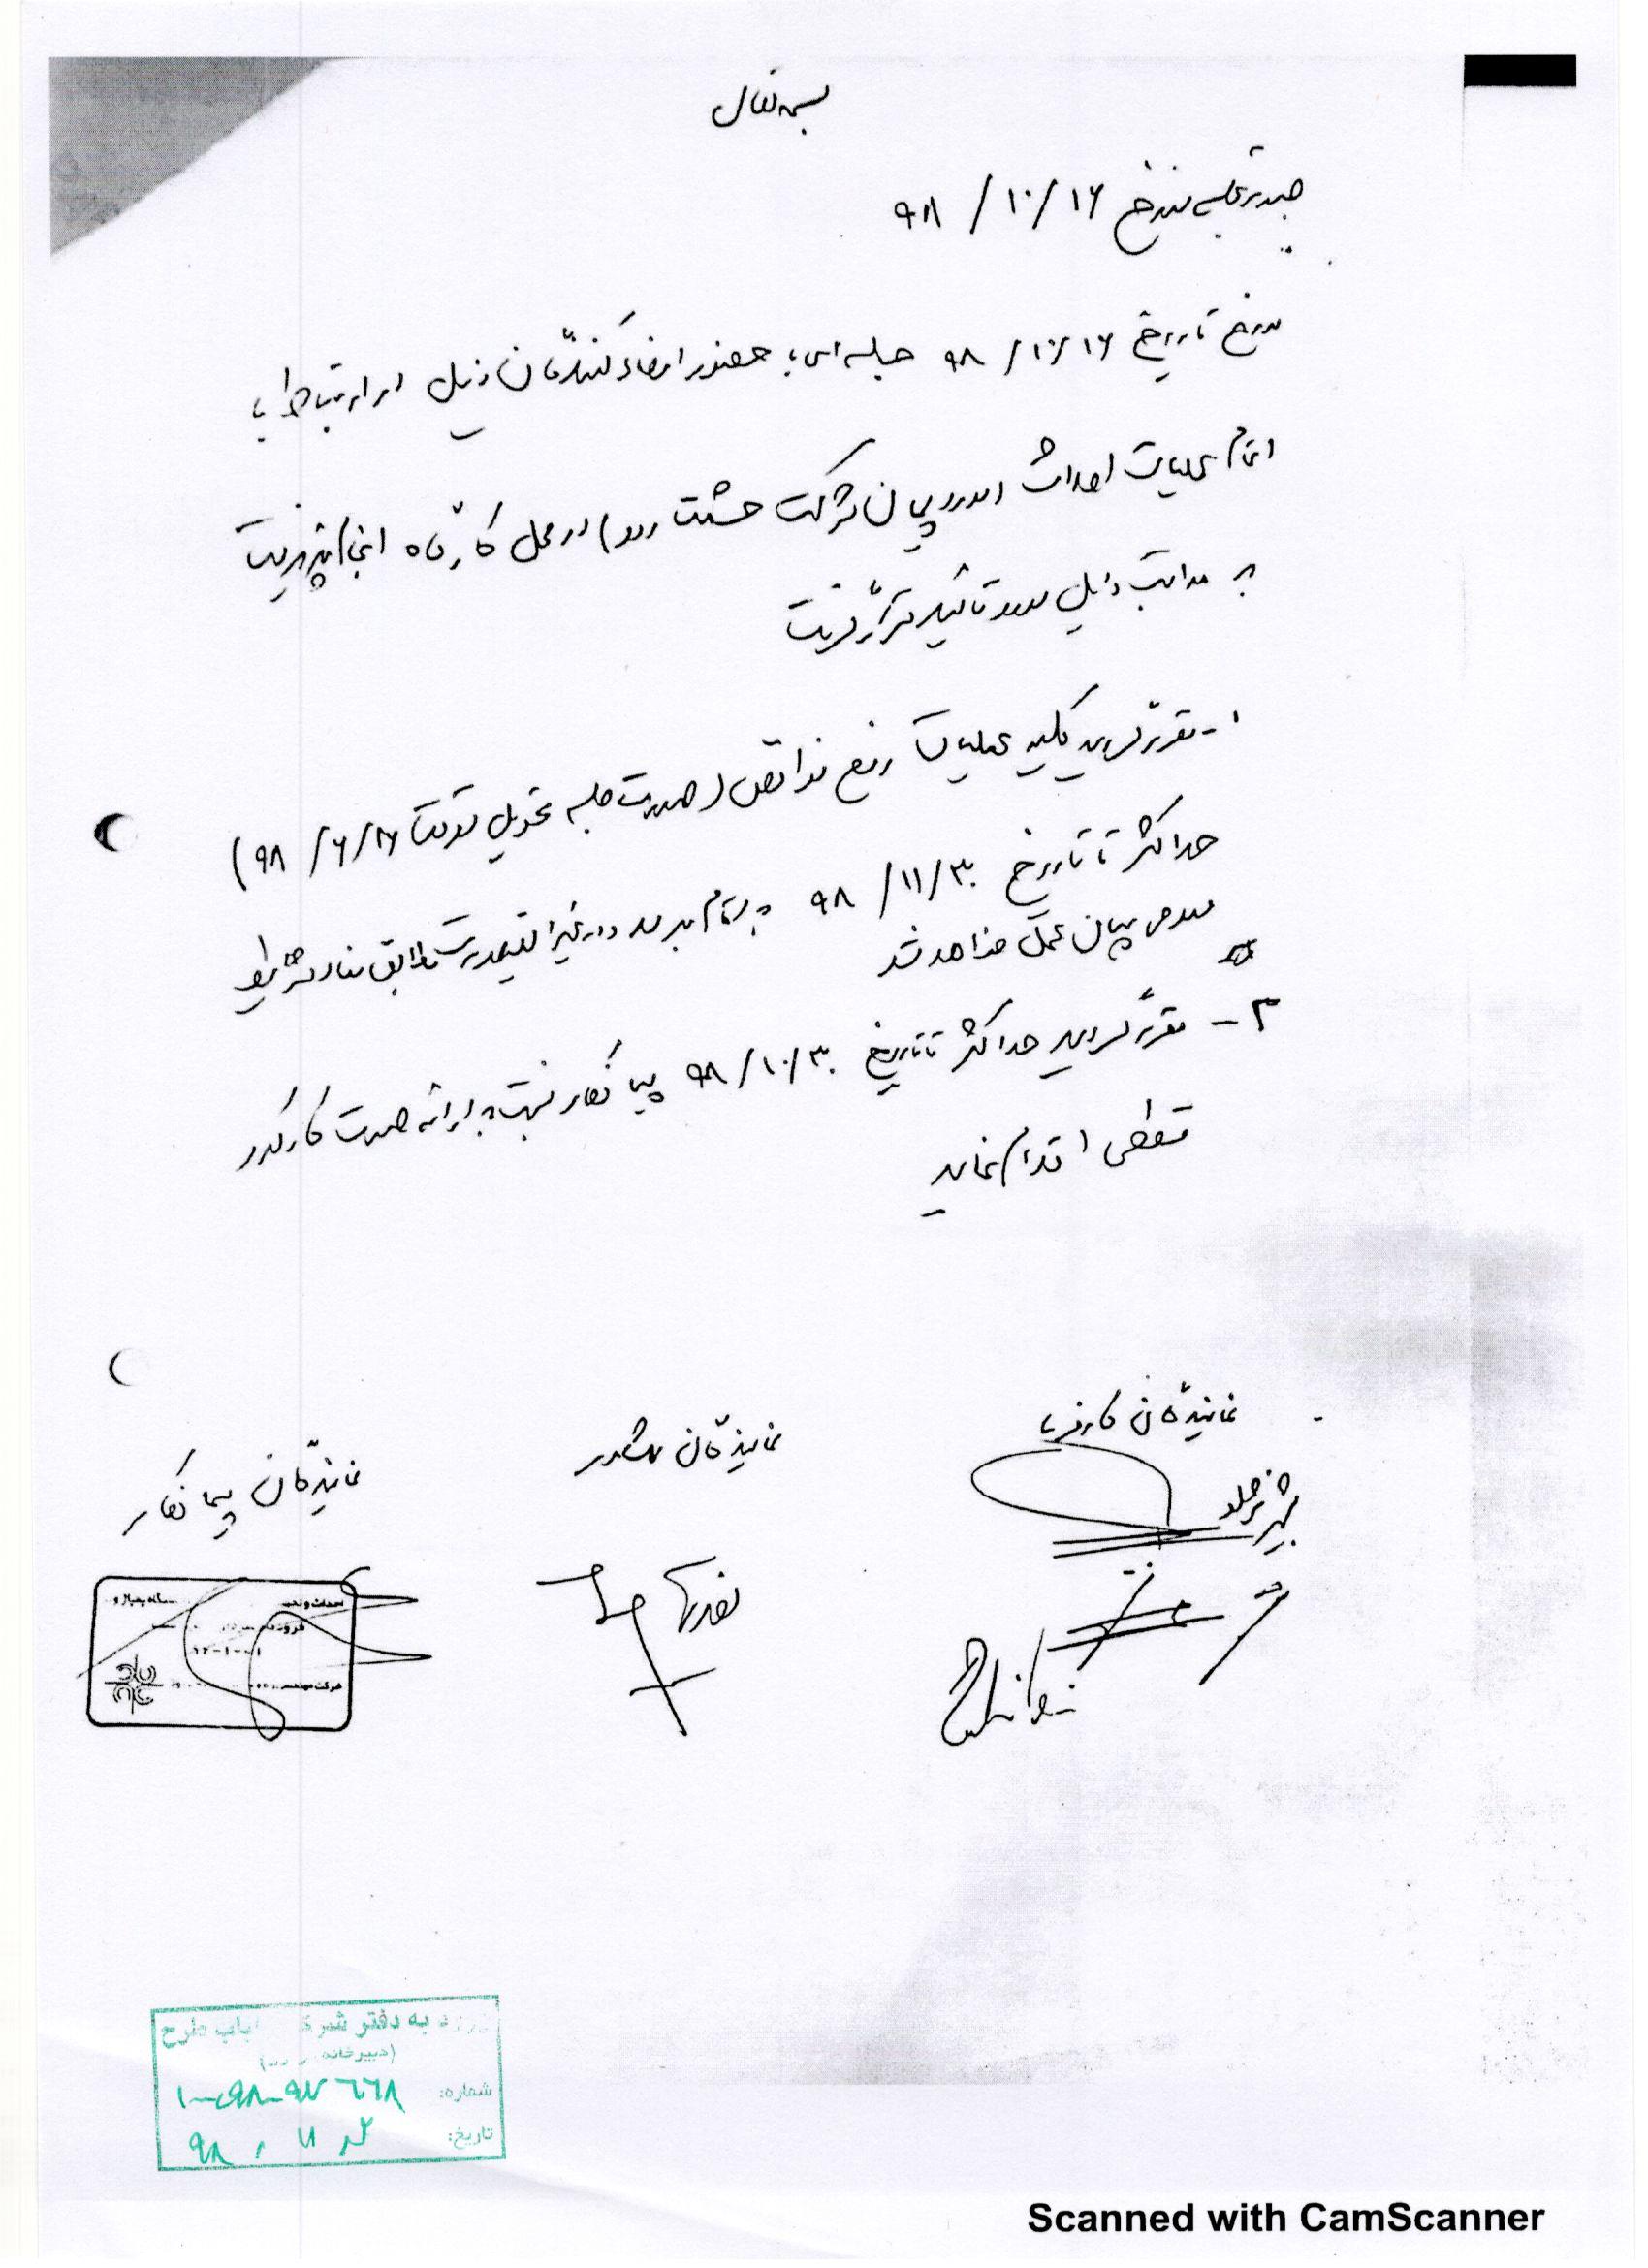 بسمه تعالی
صورتجلسه مورخ ۹۸/۱۰/۱۶
مورخ تاریخ ۹۸/۱۰/۱۶ جلسه‌ای با حضور امضاء کنندگان ذیل در ارتباط با
اتمام عملیات احداث (مورد پیمان شرکت هشت رود) در محل کارگاه انجام پذیرفت
و مراتب ذیل مورد تاکید قرار گرفت
۱- مقرر گردید کلیه عملیات رفع نواقص (صورت جلسه تحویل موقت ۹۸/۶/۲۶)
حداکثر تا تاریخ ۹۸/۱۱/۳۰ به اتمام برسد در غیر اینصورت مطابق مفاد شرایط
عمومی پیمان عمل خواهد شد
۲- مقرر گردید حداکثر تا تاریخ ۹۸/۱۰/۳۰ پیمانکار نسبت به ارائه صورت کارکرد
قطعی اقدام نماید
نمایندگان کارفرما
نمایندگان مشاور
نمایندگان پیمانکار
احداث و
شرکت مهندسی
به دفتر طرح
(دبیرخانه
شماره:
تاریخ: ۹۸
Scanned with CamScanner